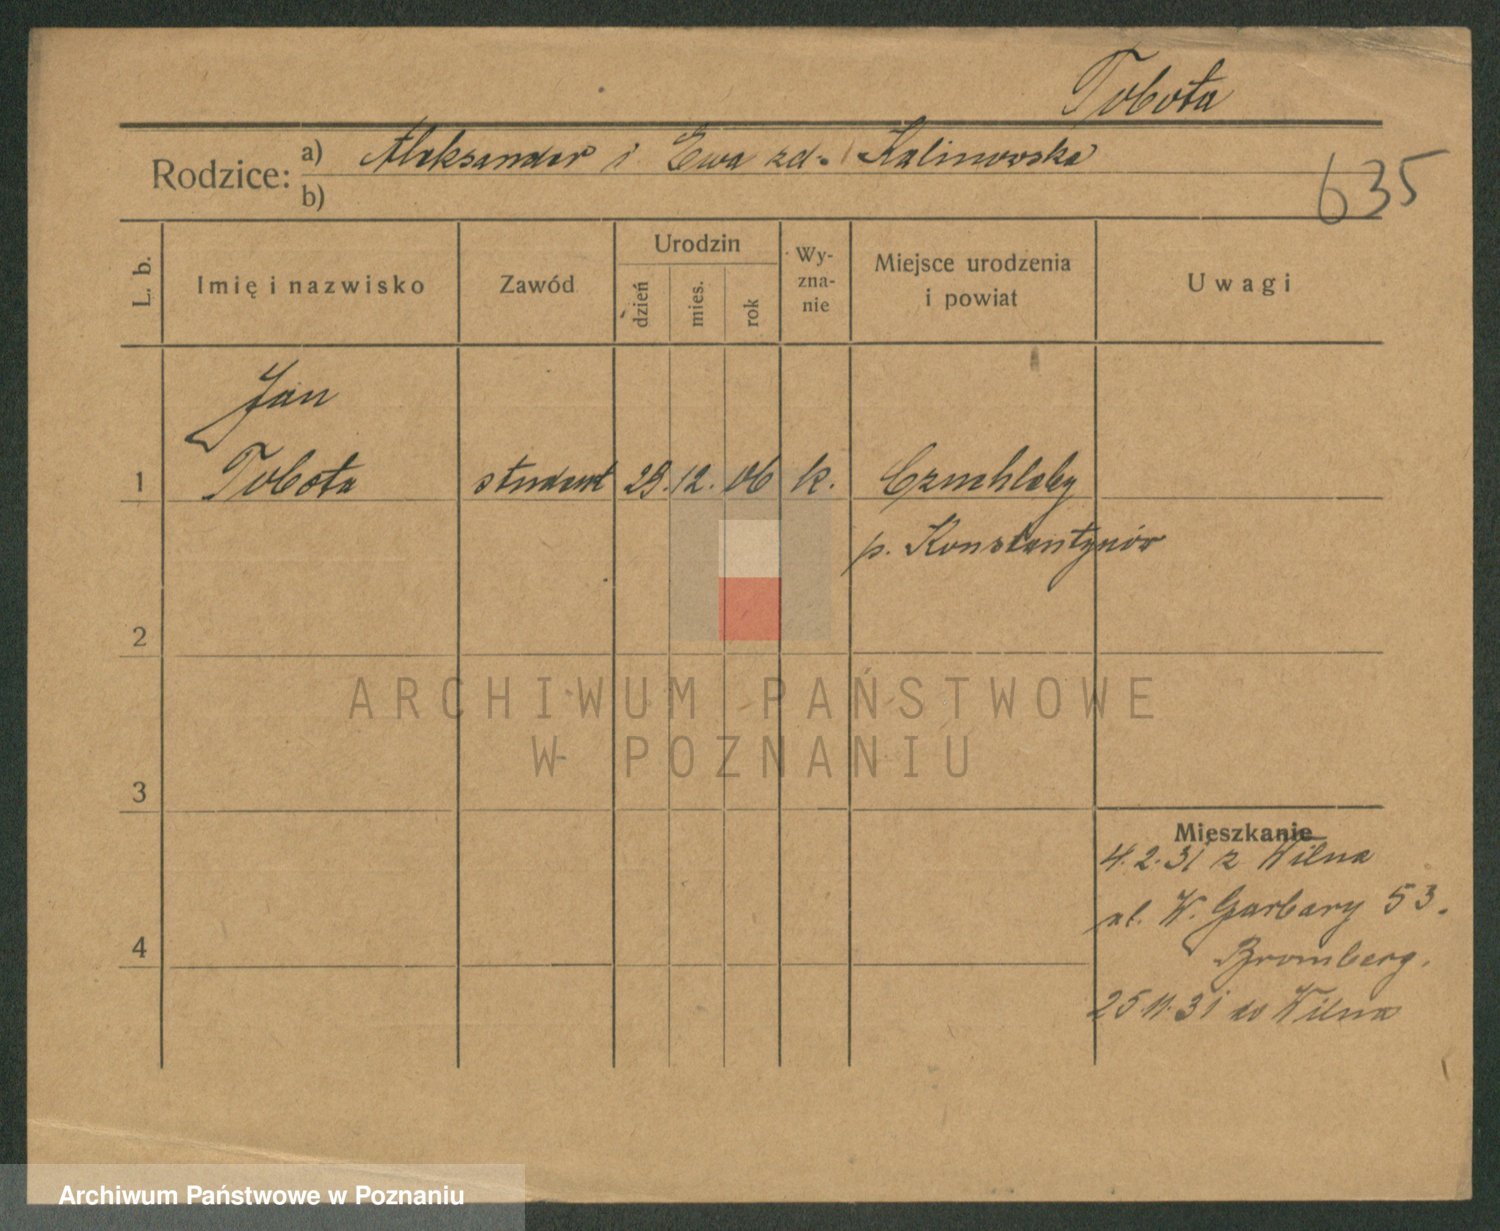 Tobota
Rodzice: a) Aleksander i Ewa zd. Kalinowska
b)
635
L. b. Imię i nazwisko Zawód Urodzin dzień mies. rok Wy-zna-nie Miejsce urodzenia i powiat Uwagi
Jan
1 Tobota student 29. 12. 06 k.
p. Konstantynów
2
ARCHIWUM PAŃSTWOWE
W POZNANIU
3
Mieszkanie
4.2.31 z Wilna
ul. W. Garbary 53.
4 Bromberg.
25 11. 31 do Wilna
Archiwum Państwowe w Poznaniu